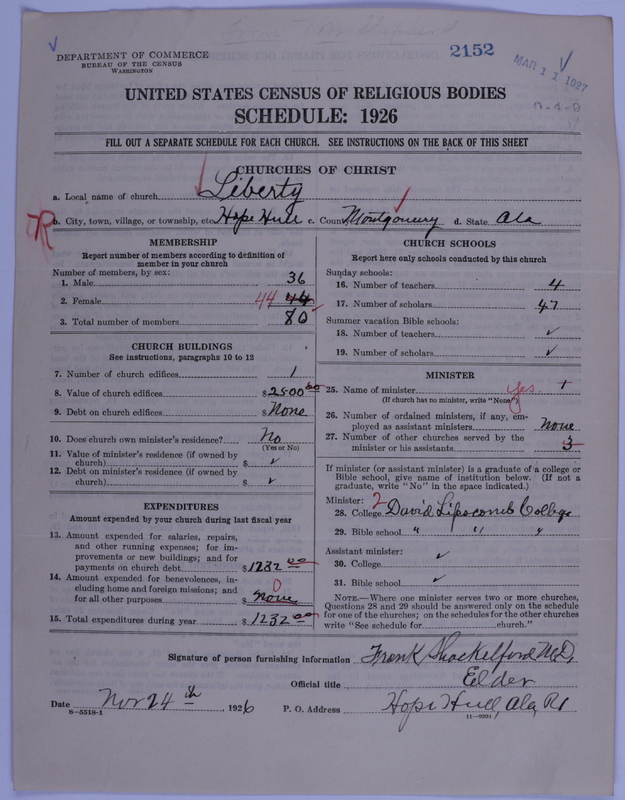 2152
MAR 11 1927
DEPARTMENT OF COMMERCE
BUREAU OF THE CENSUS
WASHINGTON
UNITED STATES CENSUS OF RELIGIOUS BODIES
SCHEDULE: 1926
FILL OUT A SEPARATE SCHEDULE FOR EACH CHURCH. SEE INSTRUCTIONS ON THE BACK OF THIS SHEET
CHURCHES OF CHRIST
a. Local name of church Liberty
R
b. City, town, village, or township, etc. Hope Hull c. County Montgomery d. State Ala
MEMBERSHIP
Report number of members according to definition of
member in your church
Number of members, by sex:
1. Male 36
2. Female 44 44
3. Total number of members 80
CHURCH BUILDINGS
See instructions, paragraphs 10 to 12
7. Number of church edifices 1
8. Value of church edifices $2500 00
9. Debt on church edifices $ None
10. Does church own minister's residence? No
(Yes or No)
11. Value of minister's residence (if owned by
church) $ ✓
12. Debt on minister's residence (if owned by
church) $ ✓
EXPENDITURES
Amount expended by your church during last fiscal year
13. Amount expended for salaries, repairs,
and other running expenses; for im-
provements or new buildings; and for
payments on church debt $1232 00
14. Amount expended for benevolences, in-
cluding home and foreign missions; and
for all other purposes $ None 0
15. Total expenditures during year $1232 00
CHURCH SCHOOLS
Report here only schools conducted by this church
Sunday schools:
16. Number of teachers 4
17. Number of scholars 47
Summer vacation Bible schools:
18. Number of teachers ✓
19. Number of scholars ✓
MINISTER
25. Name of minister yes. 1
(If church has no minister, write "None")
26. Number of ordained ministers, if any, em-
ployed as assistant ministers None
27. Number of other churches served by the
minister or his assistants 3
If minister (or assistant minister) is a graduate of a college or
Bible school, give name of institution below. (If not a
graduate, write "No" in the space indicated.)
Minister:
28. College 2 David Lipscomb College
29. Bible school " " "
Assistant minister:
30. College ✓
31. Bible school ✓
NOTE.—Where one minister serves two or more churches,
Questions 28 and 29 should be answered only on the schedule
for one of the churches; on the schedules for the other churches
write "See schedule for church."
Signature of person furnishing information Frank Shackelford M.D,
Official title Elder
Date Nov 24th, 1926 P. O. Address Hope Hull, Ala, R1
8—5518-1
11—9204